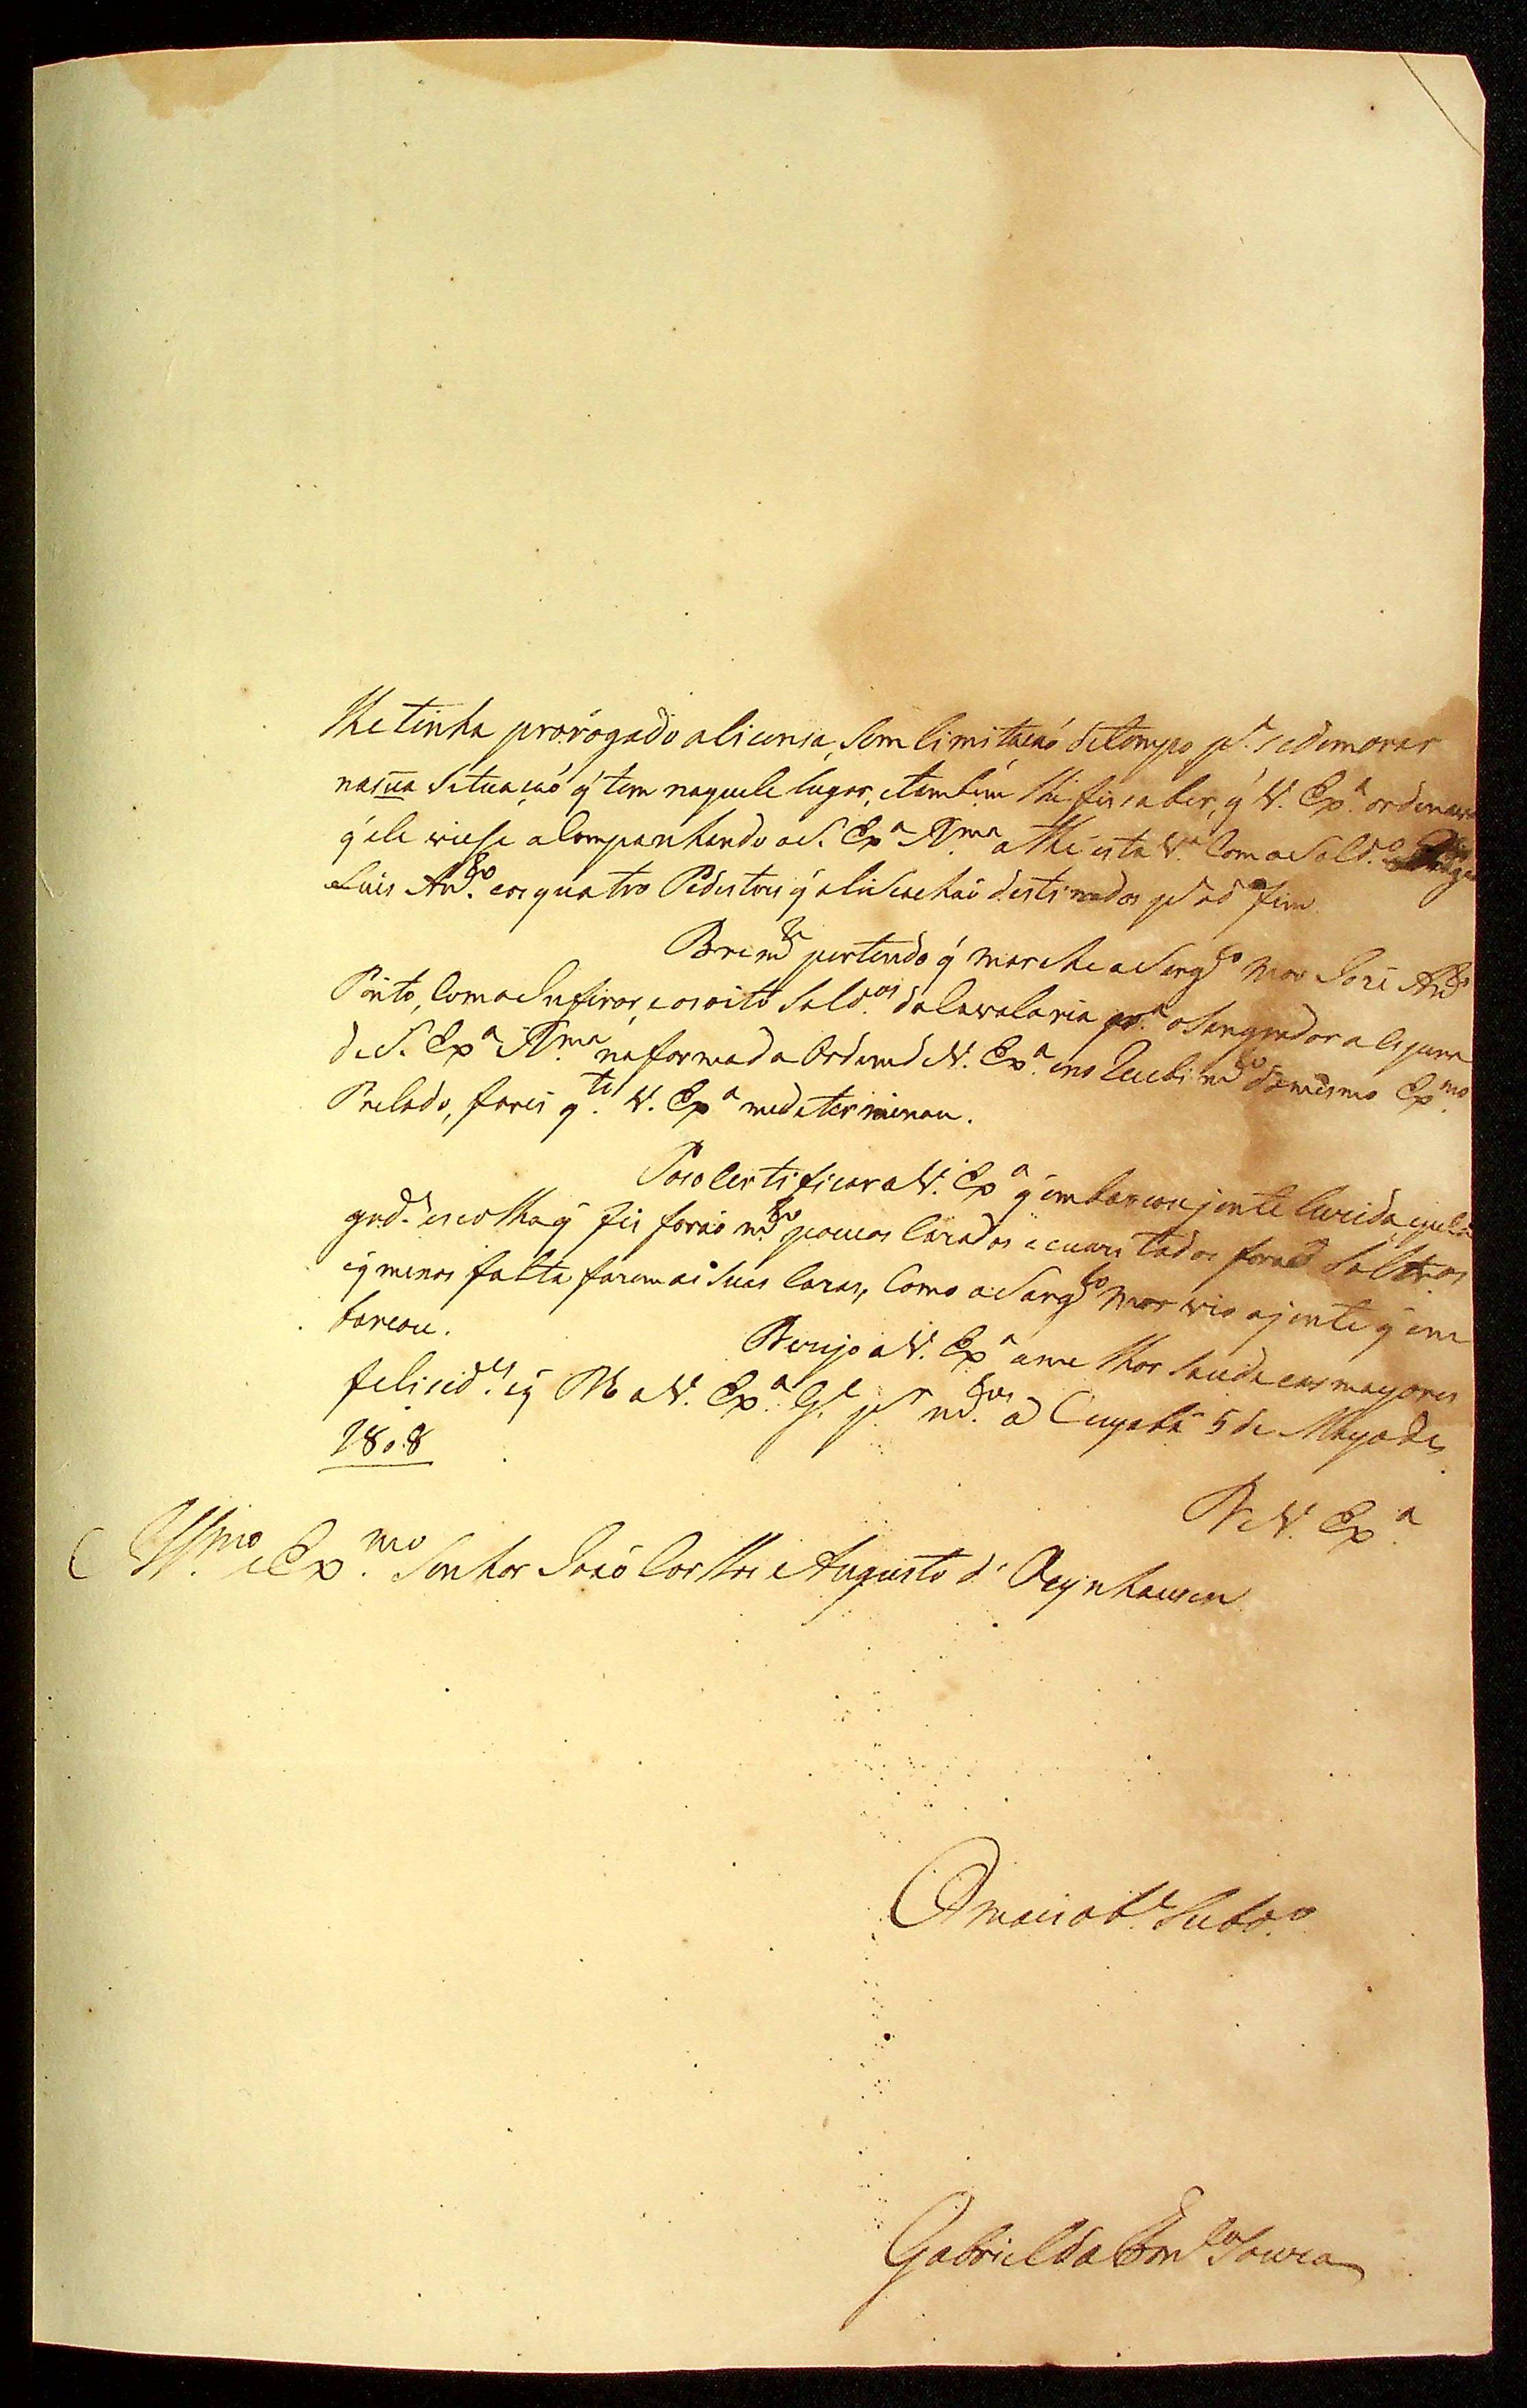 lhe tinha prorogado alicensa, Sem limitacaó detempo pª. sedemorar
nasua Situaçaó q̃ tem naquele lugar, etambem lhe fis saber, q̃ V. Exª. ordenava
q̃ ele viese acompanhando aS. Exª Rma. athé esta Vª. Com oSoldº.
Luis Andº. eos quatro Pedestres q̃ ali Seachaó destinados pª od.º fim
Brevᵉ pertendo q̃ marche oSargto Mor Jozé Antº
Pinto, Com oInferior, eos oito Soldos. daCavalaria pª. aSeguransa
deS. Exª Rma. naforma da Ordem deV. Exª. eno Recebimto domesmo Exmo.
Prelado, farei qto. V. Exª medeterminou.
Poso Certificar aV. Exª q̃ embarcou jente luzida, epela
grdᵉ. escolha q̃ fis foraó mto poucos Cazados e cuazi todos foraó Soltros.
eq̃ menos falta fazem as Suas Cazas, Como oSargto Mor vio ajente q̃ em
barcou.
Dezejo aV. Exª amelhor Saude eas mayores
felicides. eq̃ Ds aV. Exª. Ge. pr. ms. as Cuyabá 5 de Mayo de
1808
De V. Exª.
Illmo. e Exmo. Senhor Joaó Carllos Augusto d' Oeynhausen
O mais obe. Subdº.
Gabriel da Fonca Souza